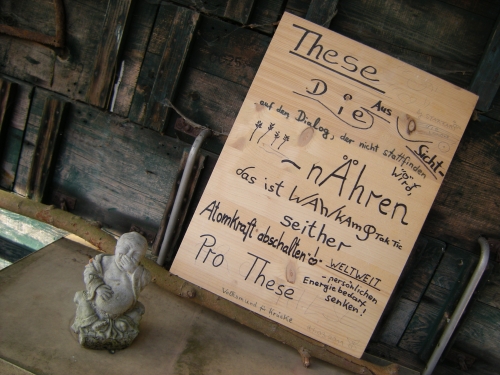 These
Die Aus Sicht-
auf den Dialog, der nicht stattfinden
wird,
~nÄhren
das ist WAhlkAmpf TakTic
seither
Atomkraft abschalten! WELTWEIT
Pro These
- persönlichen
Energiebedarf
senken!